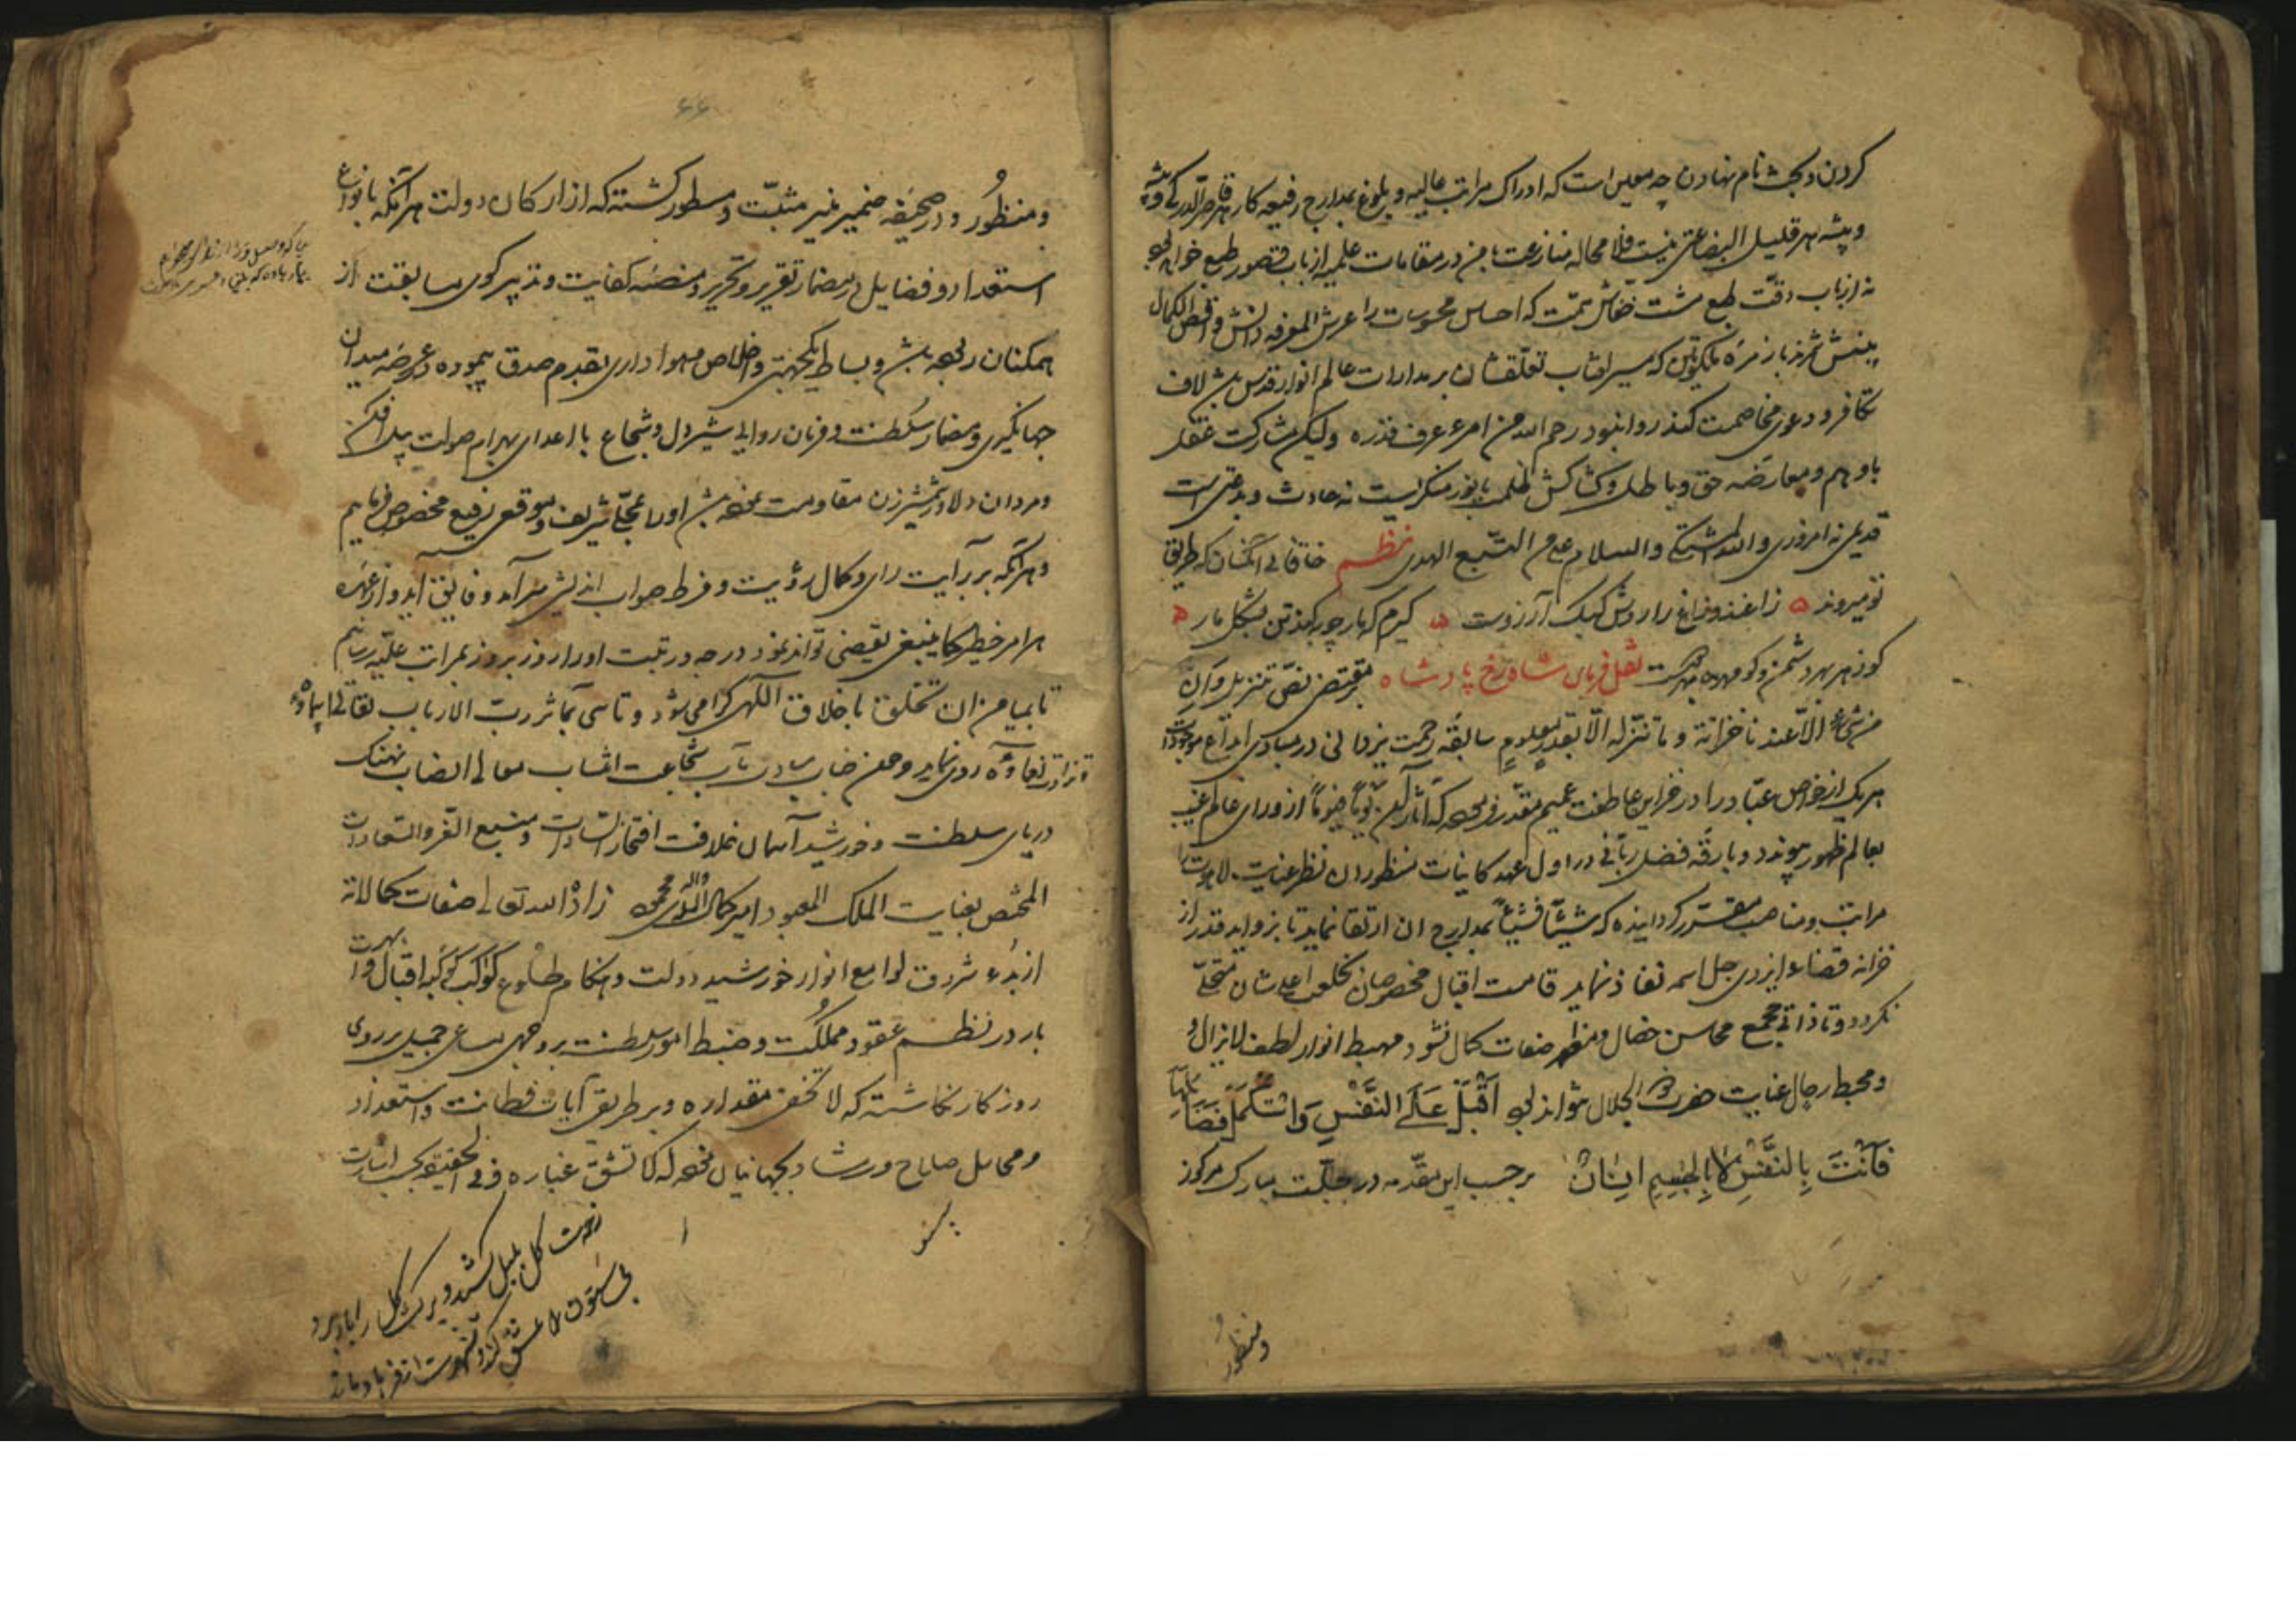 کردن و بحث نام نهادن چه معین است که ادراک مراتب عالیه و بلوغ بمدارج رفیعه کار هر قاصر
و پیشه هر قلیل البضاعتی نیست فلا محاله منازعت با من در مقامات علمیه از باب قصور طبع خواهد
نه از باب دقت طبع مشت خفاش همت که احساس محسوسات را عرش المعرفه دانش و اقصی الکمال
بینش شمرند با زمره ملکوتیان که مسیر افتاب تعلقشان بر مدارات عالم انوار قدس باشد لاف
تکافر و دعوی مخاصمت کنند روا نبود رحم الله من امرء عرف قدره ولیکن مشارکت عقل
با وهم و معارضه حق و باطل و کشاکش ظلمت با نور منکریست نه حادث و بدعتی است
قدیمی نه امروزی والسلام علی من التبع الهدی نظم خاقانی آن کسان که طریق
تو میروند زاغند و زاغ را روش کبک آرزوست گیرم که مار چوبه کند تن بشکل مار
کو زهر بهر دشمن و کو مهره بهر دوست نقل فرمان شاهرخ پادشاه بمقتضی نص تنزیل و ان
من شیء الا عندنا خزائنه و ما ننزله الا بقدر معلوم سابقه رحمت یزدانی در مبادی ابداع موجودات
هر یک از خواص عباد را در خزاین عاطفت عمیم مقدر فرموده که اثار آن یوما فیوما از ورای عالم غیب
بعالم ظهور پیوندد و بارقه فضل ربانی در اول عهد کاینات منظوران نظر عنایت
مراتب و مناصب مقرر کردانیده که شیئا فشیئا بمدارج ان ارتقا نماید تا بزواید قدر از
خزانه قضاء ایزدی جل اسمه نفاذ نماید قامت اقبال مخصوصان بخلعت اعلی شان متحلی
نکردد و تا ذاتی مجمع محاسن خصال و مظهر صفات کمال نشود مهبط انوار لطف لایزال
و محیط رحال عنایت حضرت ذو الجلال نتواند بود اقبل علی النفس واستکمل فضائلها
فانت بالنفس لا بالجسم انسان بر حسب این مقدمه در جبلت مبارک مرکوز
ومنظور
۶۶
و منظور و در صحیفه ضمیر منیر مثبت و مسطور کشته که از ارکان دولت هر آنکه بانواع
استعداد و فضایل در مضمار تقریر و تحریر و منصه کفایت و تدبیر کوی سابقت از
همکنان ربوده باشد و بساط یکجهتی و اخلاص و هواداری بقدم صدق پیموده و در عرصه میدان
جهانگیری و مضمار سلطنت و فرمان روایی شیردل و شجاع با اعدای بهرام صولت پیل افکن
و مردان دلاور شمشیرزن مقاومت نموده باشد او را بمحل شریف و موقع رفیع مخصوص فرماییم
و هر آنکه بر آیت رای و کمال رؤیت و فرط صواب اندیشی سر آمد و فایق آید و از عهده
هر امر خطیر کما ینبغی تقصی تواند نمود درجه و رتبت او را روز بروز بمراتب علیه رسانیم
تا بمیامن ان تخلق باخلاق اللهی کرامی شود و تاسی بمآثر رب الارباب تعالی
روی نماید و چون جناب سیادت مآب شجاعت انتساب معالی انصاب نهنک
دریای سلطنت و خورشید آسمان خلافت افتخار السادات و منبع العز و السعادات
المختص بعنایت الملک المعبود امیر کمال الدین محمود زاد الله تعالی صفات کمالاته
از بدء شروق لوامع انوار خورشید دولت و هنکام طلوع کوکب کوکبه اقبال
بار در نظم عقود مملکت و ضبط امور سلطنت بر وجهی مساعی جمیل بر روی
روزکار نکاشته که لا تخفی مقداره و بر طریق آیات فطانت و استعداد
و محامل صلاح و رشاد بجهانیان نموده که لا تشق غباره و فی الحقیقه بحسب
زحمت گل بلبل کشید و برک گل را باد برد
بی ستون را عشق کند و شهرت از فرهاد ماند